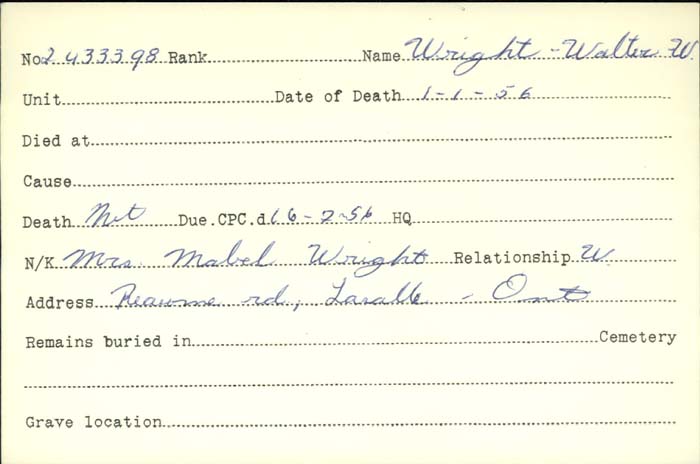 No 2433398 Rank Name Wright - Walter W.
Unit Date of Death 1-1-56
Died at
Cause
Death Not Due.CPC.d 16-2-56 HQ
N/K Mrs. Mabel Wright Relationship W.
Address Reaume rd, Lasalle - Ont
Remains buried in Cemetery
Grave location